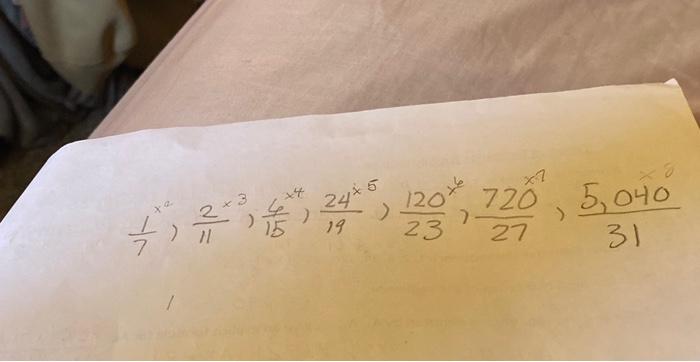 1/7 x2, 2/11 x3, 6/15 x4, 24/19 x5, 120/23 x6, 720/27 x7, 5,040/31 x8